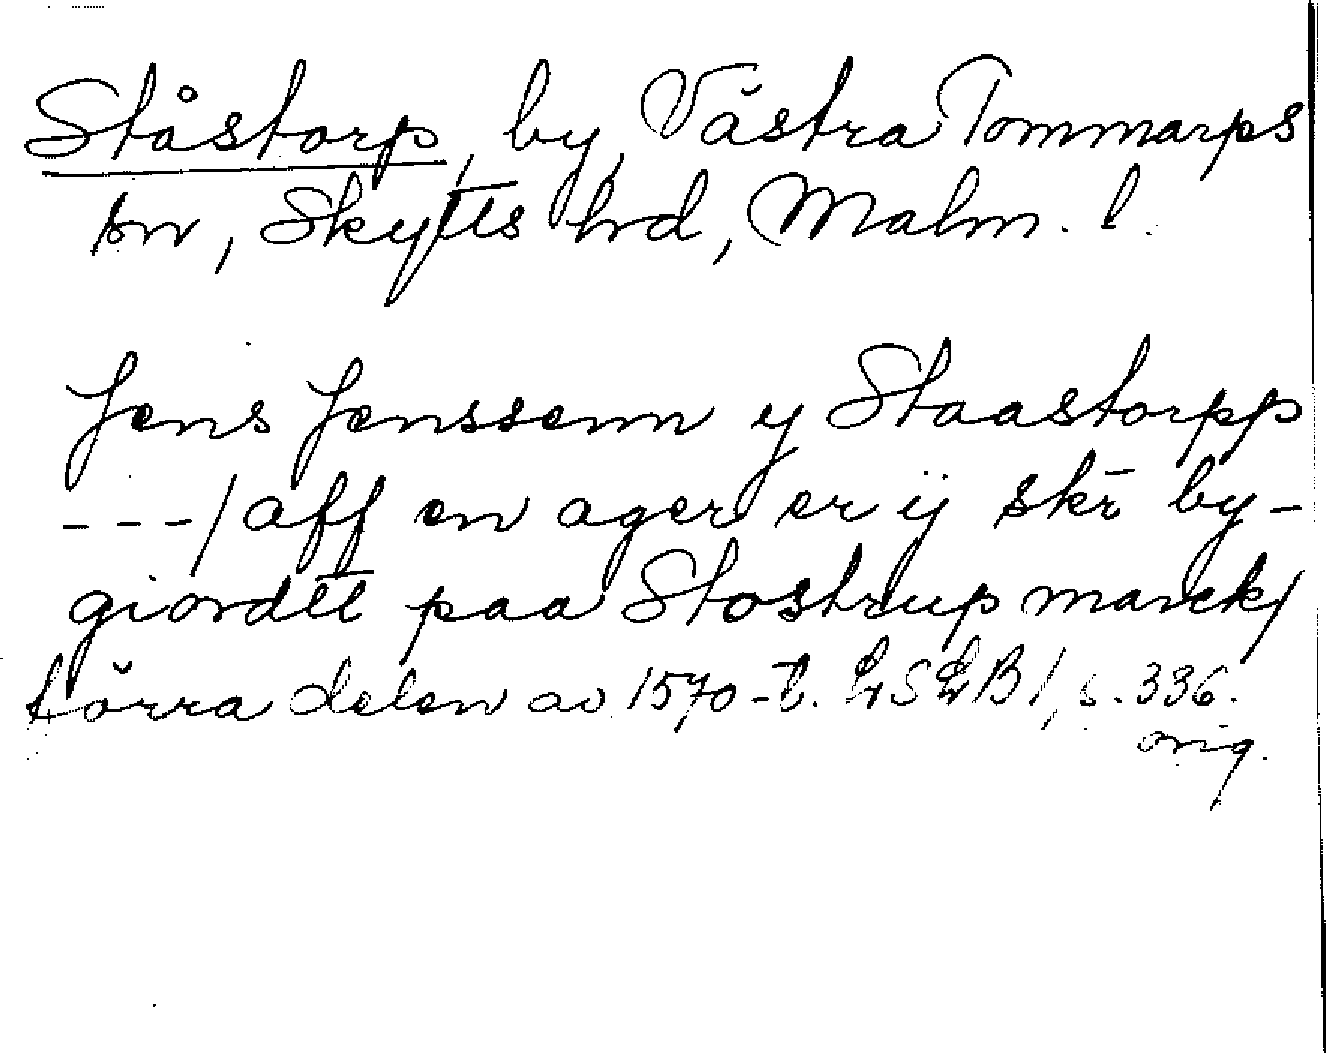 Ståstorp, by, Västra Tommarps
sn, Skytts hrd, Malm. l.
Jens Jenssenn y Staastorpp
---/ aff en ager er ij skr̄ by-
giordtt paa Stostrup marck/
förra delen av 1570-t. LSLB 1, s. 336.
orig.